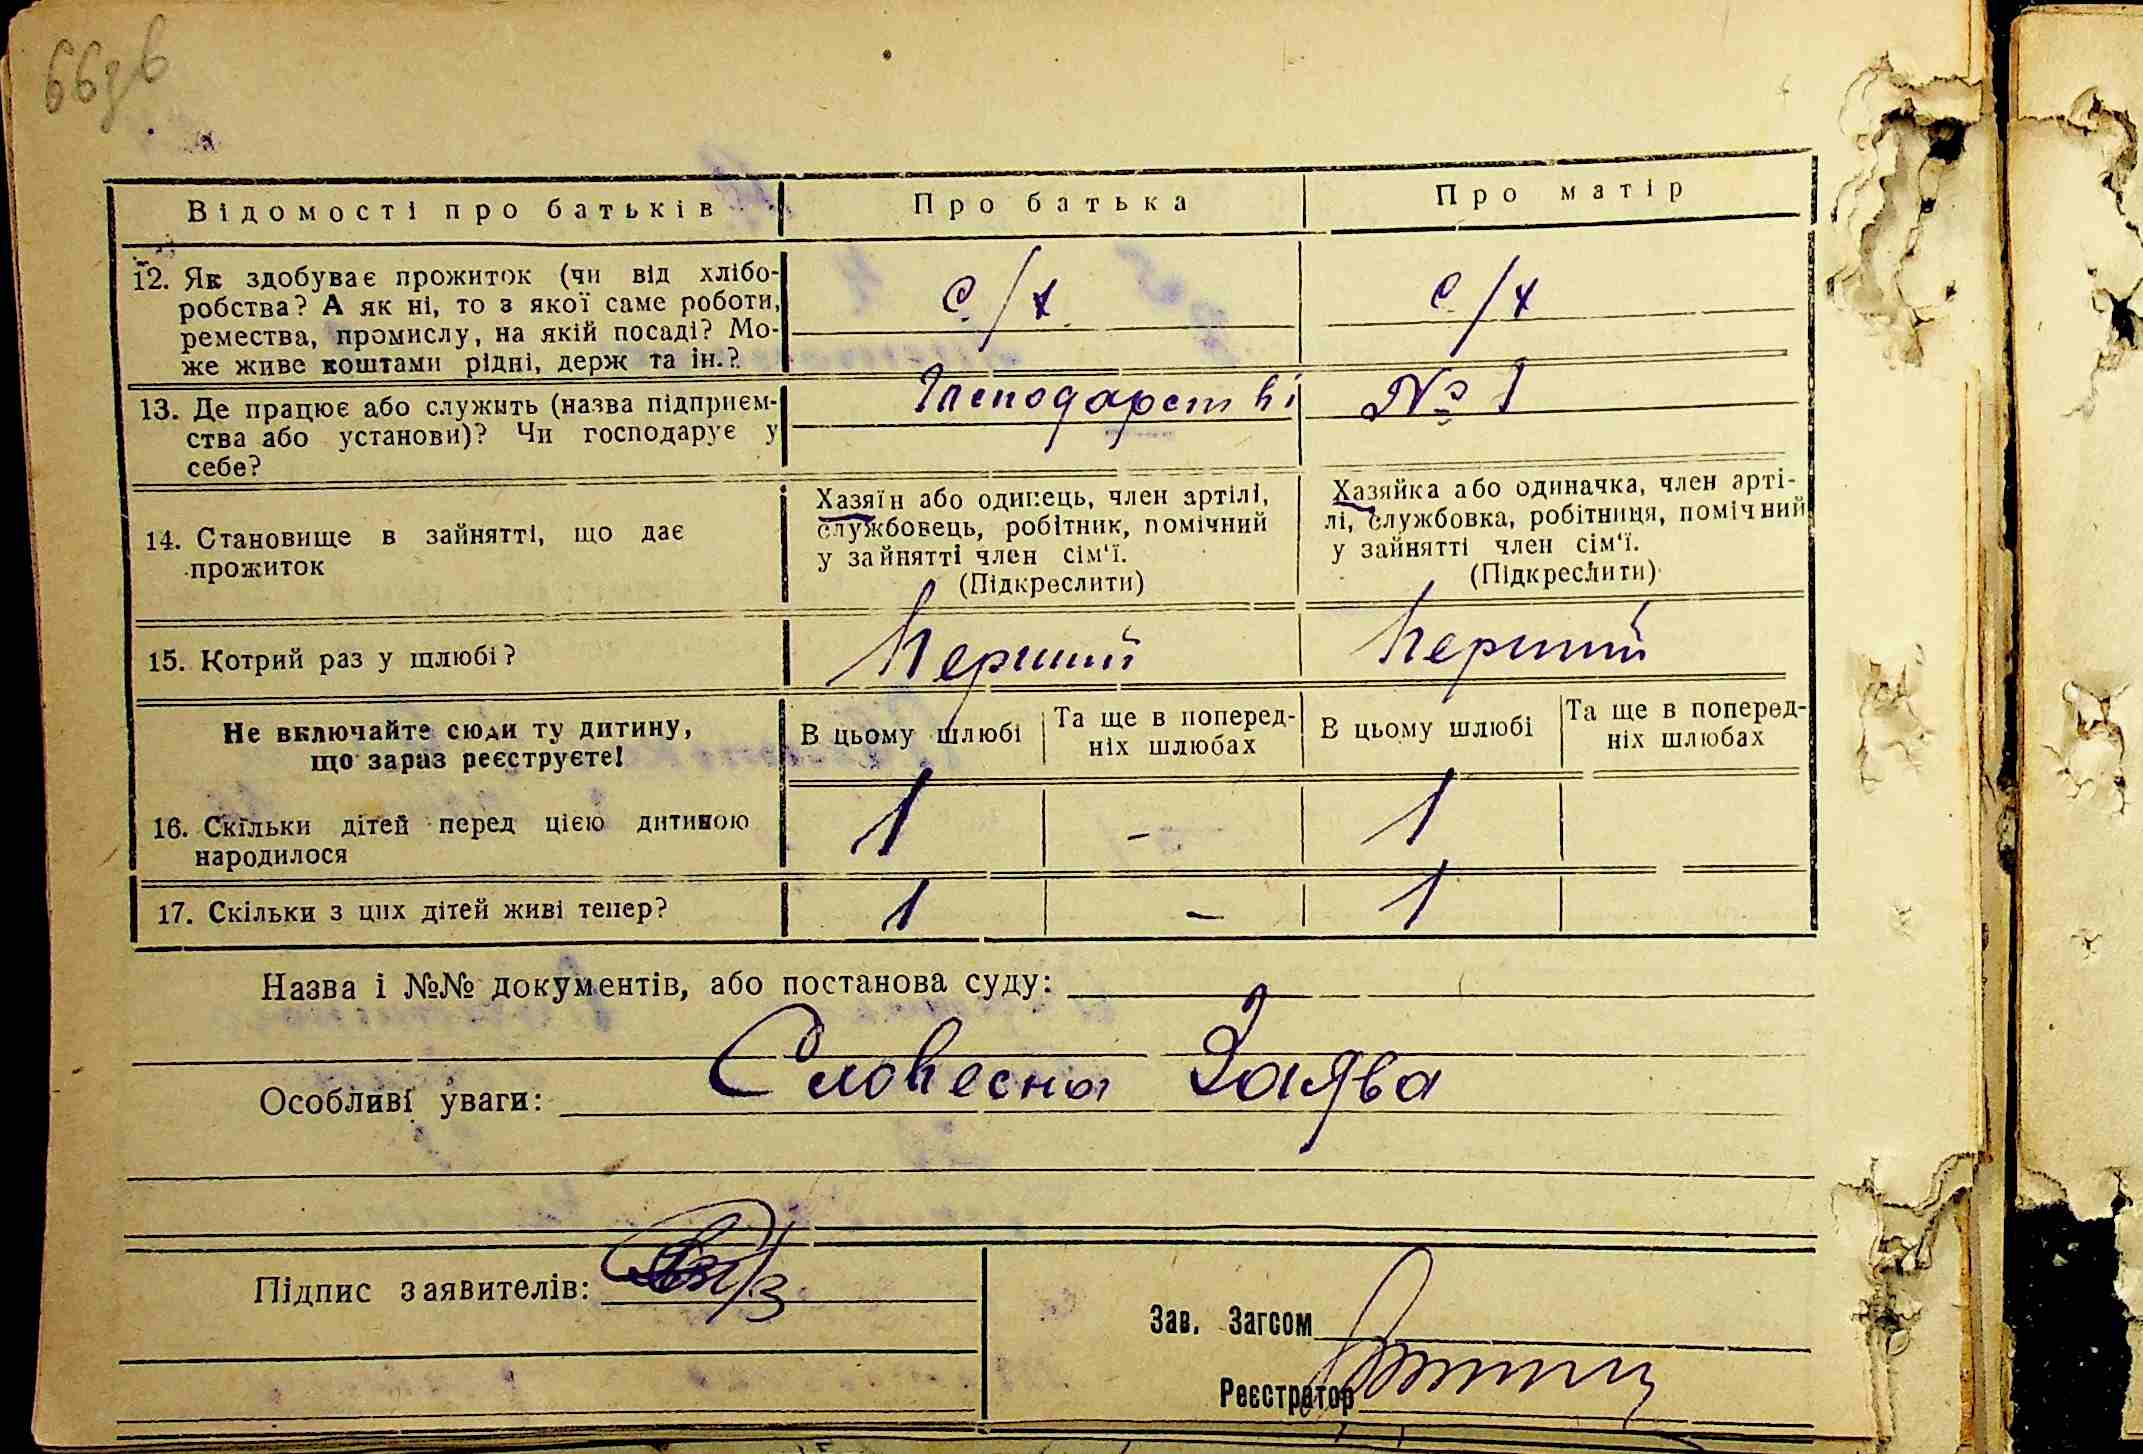 66зв
Відомості про батьків
Про батька
Про матір
12. Як здобуває прожиток (чи від хлібо-
робства? А як ні, то з якої саме роботи,
ремества, промислу, на якій посаді? Мо-
же живе коштами рідні, держ та ін.?
с/х
с/х
13. Де працює або служить (назва підприєм-
ства або установи)? Чи господарує у
себе?
№ 1
14. Становище в зайнятті, що дає
прожиток
Хазяїн або одинець, член артілі,
службовець, робітник, помічний
у зайнятті член сім'ї.
(Підкреслити)
Хазяйка або одиначка, член арті-
лі, службовка, робітниця, помічний
у зайнятті член сім'ї.
(Підкреслити)
15. Котрий раз у шлюбі?
Перший
Перший
Не включайте сюди ту дитину,
що зараз реєструєте!
В цьому шлюбі
Та ще в поперед-
ніх шлюбах
В цьому шлюбі
Та ще в поперед-
ніх шлюбах
16. Скільки дітей перед цією дитиною
народилося
1
-
1
17. Скільки з цих дітей живі тепер?
1
-
1
Назва і №№ документів, або постанова суду:
Словесна Заява
Особливі уваги:
Підпис заявителів:
Зав. Загсом
Реєстратор